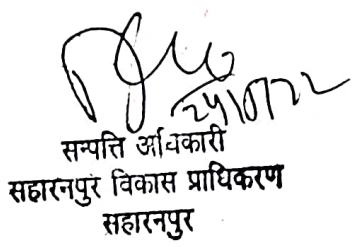 सम्पत्ति अधिकारी
सहारनपुर विकास प्राधिकरण
सहारनपुर